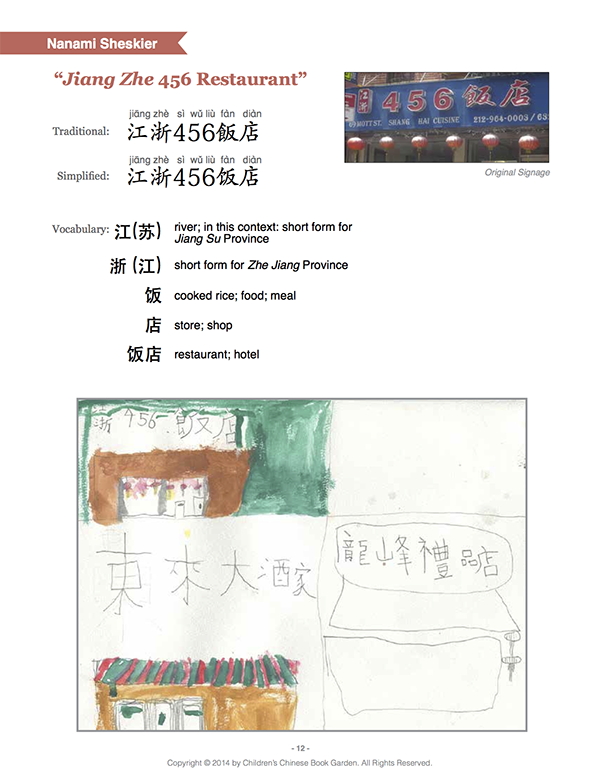 Nanami Sheskier
“Jiang Zhe 456 Restaurant”
jiāng zhè sì wŭ liù fàn diàn
Traditional: 江浙456飯店
jiāng zhè sì wŭ liù fàn diàn
Simplified: 江浙456饭店
江浙 456 飯店
MOTT ST. SHANG HAI CUISINE 212-964-0003
Original Signage
Vocabulary: 江(苏) river; in this context: short form for
Jiang Su Province
浙(江) short form for Zhe Jiang Province
饭 cooked rice; food; meal
店 store; shop
饭店 restaurant; hotel
浙 456 飯店
東來大酒家
龍峰禮品店
- 12 -
Copyright © 2014 by Children's Chinese Book Garden. All Rights Reserved.